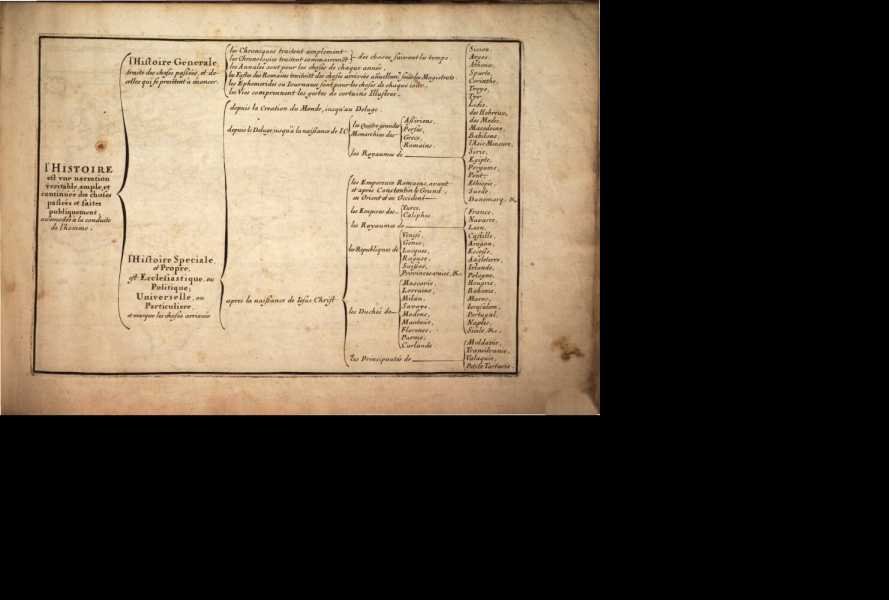 l'HISTOIRE
est vne narration
veritable, ample, et
continuée des choses
passées et faites
publiquement,
acomodée à la conduite
de l'homme.
l'Histoire Generale,
traite des choses passées, et de
celles qui se presentent à
les Chroniques traitent amplement
les Chronologies traitent sommairemt
des choses, suivant les temps.
les Annales sont pour les choses de chaque année,
les Fastes des Romains traitent des choses arrivées sous les Magistrats.
les Ephemerides ou Journaux sont pour les choses de chaque iour.
les Vies comprennent les gestes de certains Illustres.
l'Histoire Speciale,
et Propre,
est Ecclesiastique, ou
Politique;
Universelle, ou
Particuliere,
et marque les choses arrivées
depuis la Creation du Monde, iusqu'au Deluge.
depuis le Deluge, iusqu'à la naissance de I.C.
les Quatre grandes
Monarchies des
Assiriens,
Perses,
Grecs,
Romains.
les Royaumes de
Sicion,
Argos,
Athene,
Sparte,
Corinthe,
Troye,
Tyr,
des Hebreux,
des Medes,
Macedoine,
Babilone,
l'Asie Mineure,
Sirie,
Egipte,
Pergame,
Pont,
Ethiopie,
Suede,
Danemarq, &c.
apres la naissance de Iesus Christ
les Empereurs Romains, avant
et après Constantin le Grand,
en Orient et en Occident
les Empires des
Turcs,
Caliphes
les Royaumes de
France,
Navarre,
Leon,
Castille,
Aragon,
Ecosse,
Angleterre,
Irlande,
Pologne,
Hongrie,
Boheme,
Maroc,
Ierusalem,
Portugal,
Naples,
Sicile, &c.
les Republiques de
Venise,
Genes,
Lucques,
Raguse,
Suisses,
Provinces unies, &c.
les Duchés de
Moscovie,
Lorraine,
Milan,
Savoye,
Modene,
Mantoüe,
Florence,
Parme,
Curlande
les Principautés de
Moldavie,
Transilvanie,
Valaquie,
Petite Tartarie.